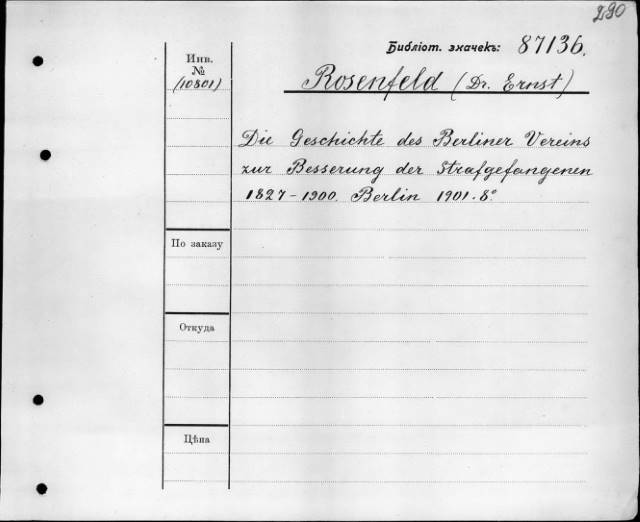 290
Библіот. значекъ: 87136.
Инв.
№
(10801)
Rosenfeld (Dr. Ernst)
Die Geschichte des Berliner Vereins
zur Besserung der Strafgefangenen
1827-1900. Berlin 1901. 8°
По заказу
Откуда
Цѣна